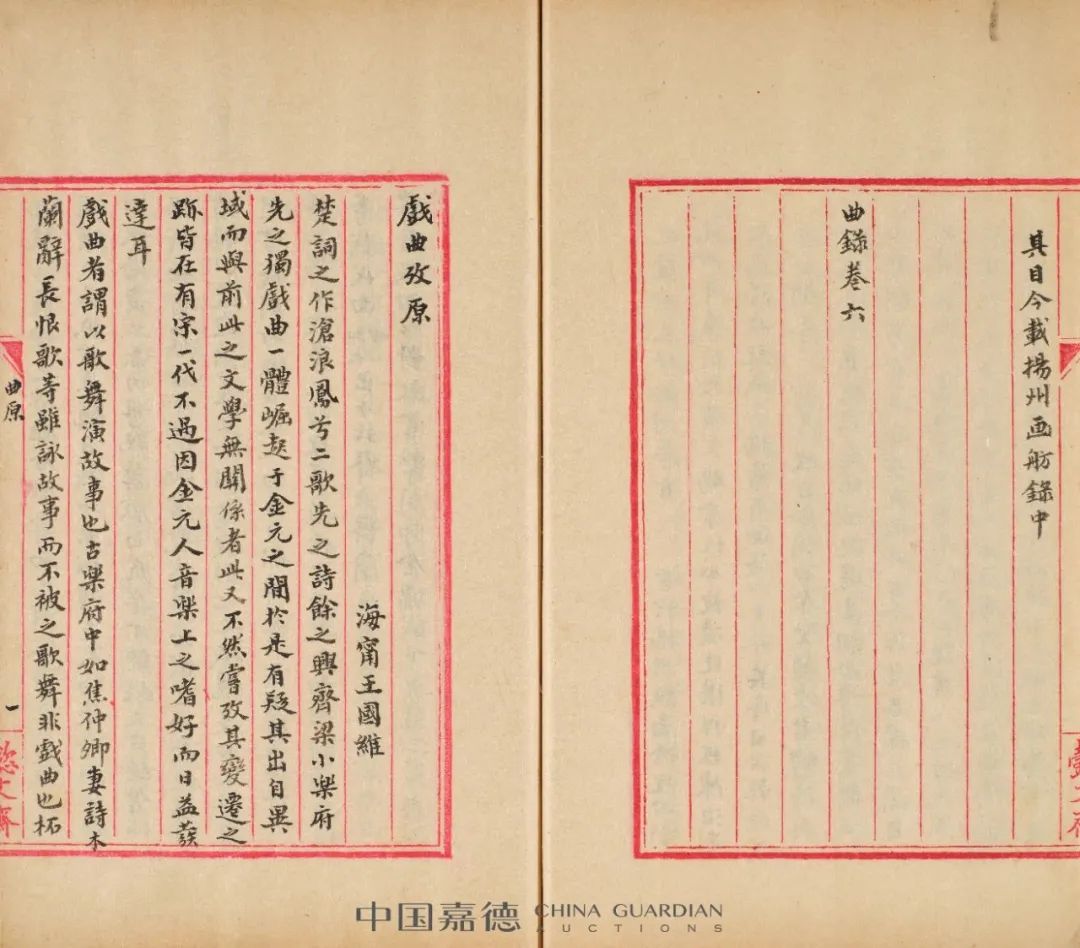 其目今載揚州画舫錄中
曲錄卷六
戲曲攷原
海甯王國維
楚詞之作滄浪鳳兮二歌先之詩餘之興齊梁小樂府
先之獨戲曲一體崛起于金元之間於是有疑其出自異
域而與前此之文學無關係者此又不然嘗攷其變遷之
跡皆在有宋一代不過因金元人音樂上之嗜好而日益發
達耳
戲曲者謂以歌舞演故事也古樂府中如焦仲卿妻詩木
蘭辭長恨歌等雖詠故事而不被之歌舞非戲曲也柘
曲原
一
懿文齋
中国嘉德 CHINA GUARDIAN
AUCTIONS